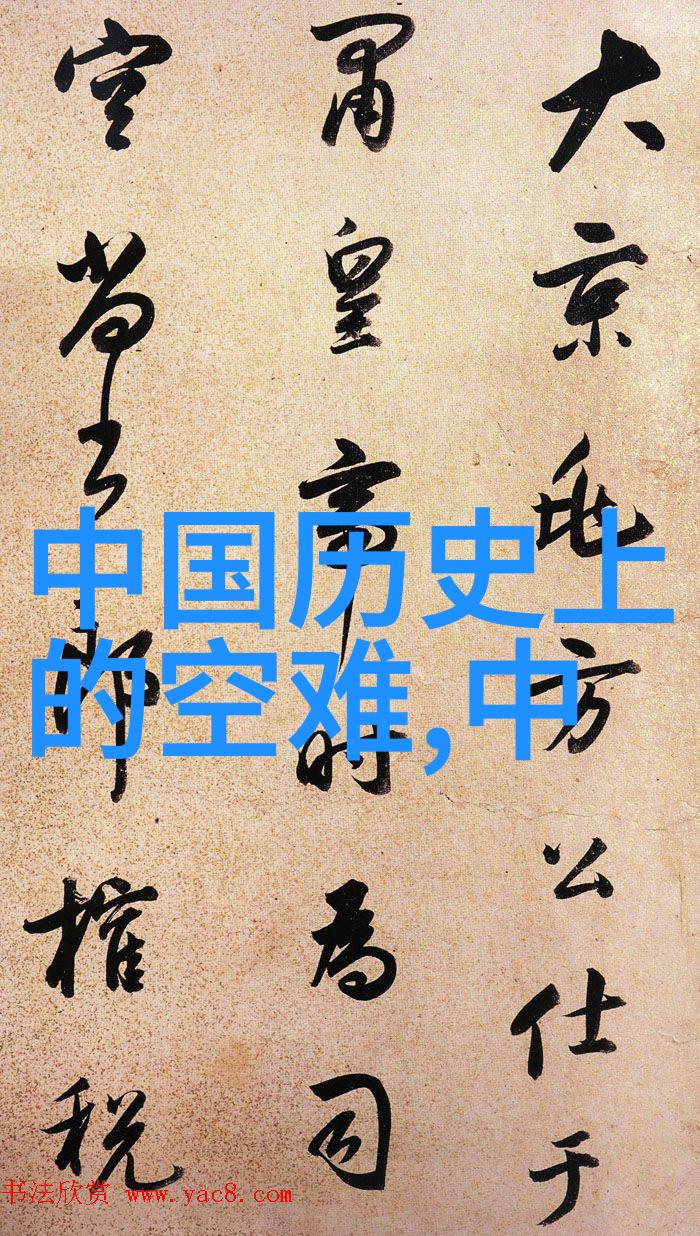 大京兆方公仕于
肅皇帝时為司
空尚书郎榷税
中国历史上
的空难,中
书法欣赏 www.yac8.com